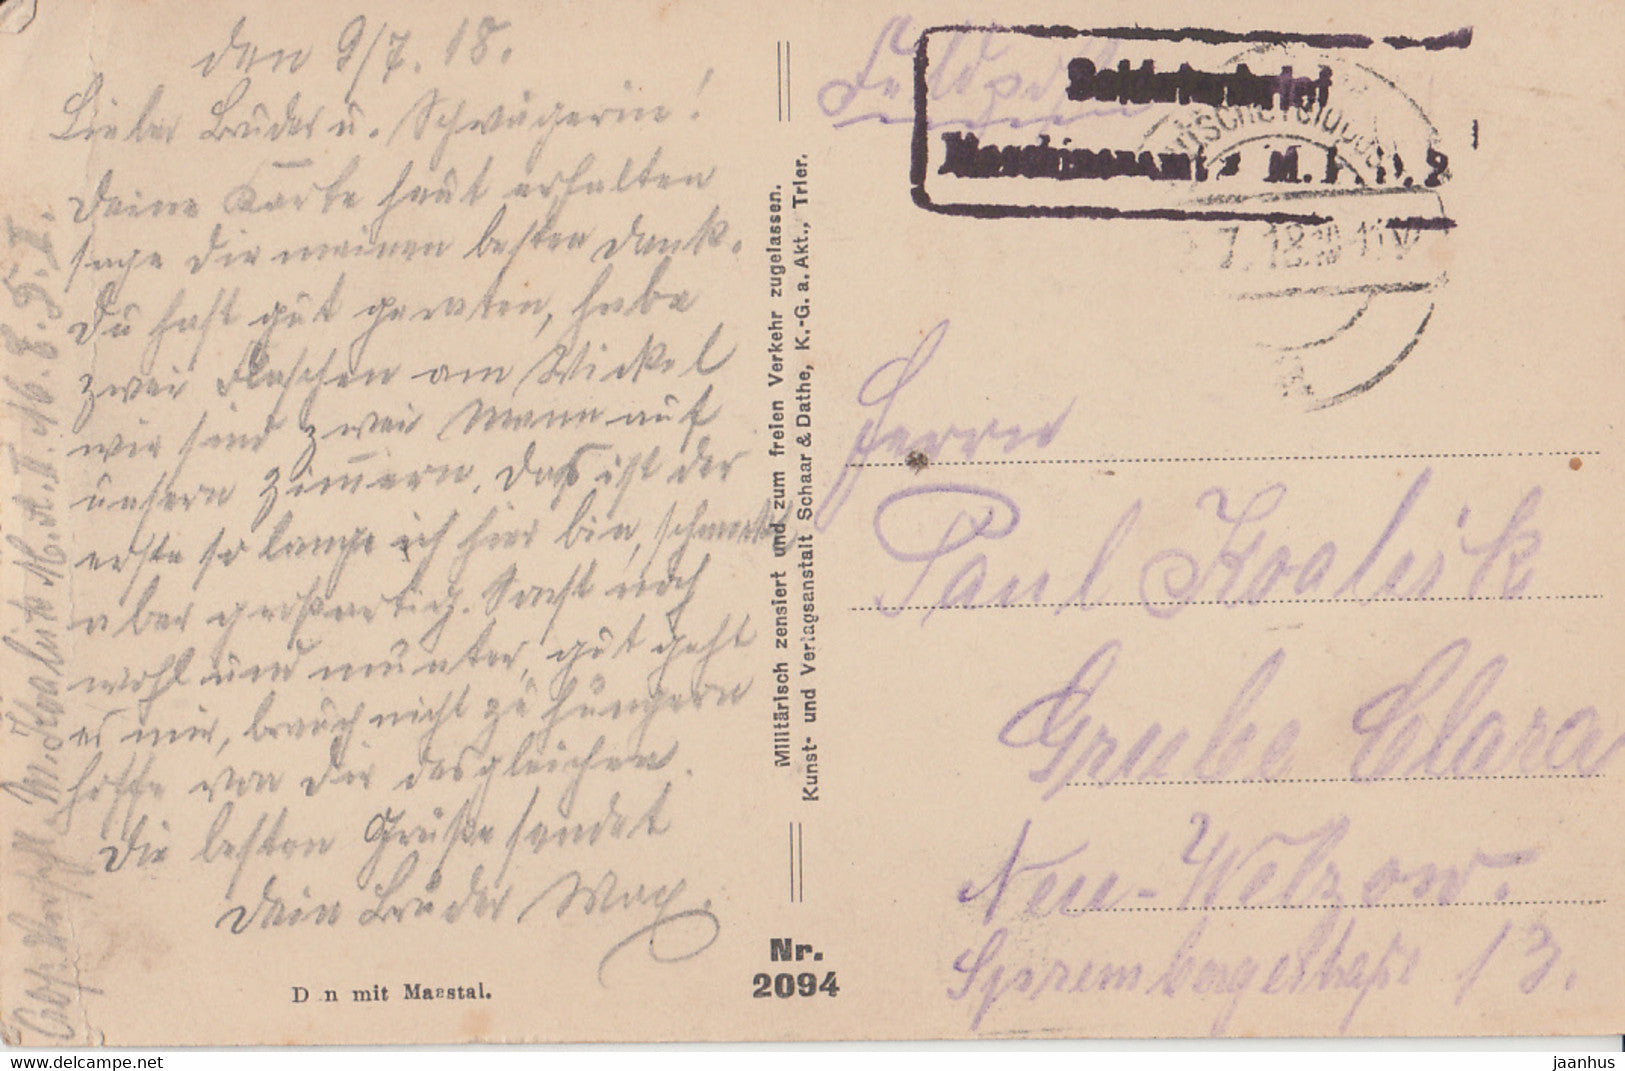 den 9/7. 18.
Lieber Bruder u. Schwägerin!
Deine Karte heut erhalten
sage dir meinen besten Dank.
Du hast gut geraten, habe
zwei Flaschen am Wickel
wir sind zwei Mann auf
unsern Zimmern. Das ist der
erste so lange ich hier bin, schmeckt
aber großartig. Sonst noch
wohl und munter, gut geht
es mir, brauch nicht zu hungern
hoffe von dir desgleichen.
Die besten Grüße sendet
Dein Bruder Max.
M. Koalick M.A.II.
D n mit Maastal.
Militärisch zensiert und zum freien Verkehr zugelassen.
Kunst- und Verlagsanstalt Schaar & Dathe, K.-G. a. Akt., Trier.
Nr.
2094
Feldpost
Soldatenbrief
Maschinenamt M.
7.18.
Herrn
Paul Koalick
Grube Clara
Neu-Welzow.
Sprembergerstraße 13.
www.delcampe.net
jaanhus